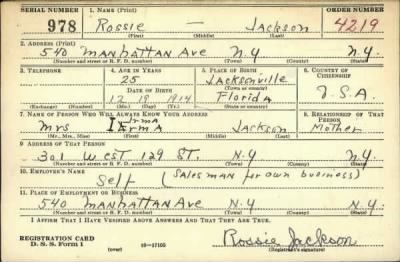 SERIAL NUMBER 1. NAME (Print) ORDER NUMBER
978 Rossie — Jackson 4219
(First) (Middle) (Last)
2. ADDRESS (Print)
540 Manhattan Ave N.Y N.Y.
(Number and street or R. F. D. number) (Town) (County) (State)
3. TELEPHONE 4. AGE IN YEARS 5. PLACE OF BIRTH 6. COUNTRY OF CITIZENSHIP
25 Jacksonville
(Town or county)
DATE OF BIRTH
12 18 1914 Florida U.S.A
(Exchange) (Number) (Mo.) (Day) (Yr.) (State or country)
7. NAME OF PERSON WHO WILL ALWAYS KNOW YOUR ADDRESS 8. RELATIONSHIP OF THAT PERSON
Irma
Mrs Jackson Mother
(Mr., Mrs., Miss) (First) (Middle) (Last)
9. ADDRESS OF THAT PERSON
301 West 129 St. N.Y N.Y.
(Number and street or R. F. D. number) (Town) (County) (State)
10. EMPLOYER'S NAME
Self (Salesman for own business)
11. PLACE OF EMPLOYMENT OR BUSINESS
540 Manhattan Ave N.Y N.Y.
(Number and street or R. F. D. number) (Town) (County) (State)
I AFFIRM THAT I HAVE VERIFIED ABOVE ANSWERS AND THAT THEY ARE TRUE.
REGISTRATION CARD
D. S. S. FORM 1 (over) 16—17105 Rossie Jackson
(Registrant's signature)